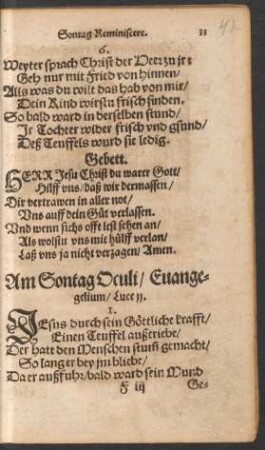 Sontag Reminiscere. 33
6.
Weyter sprach Christ der Herr zu jr:
Geh nur mit Fried von hinnen/
Alls was du wilt das hab von mir/
Dein Kind wirstu frisch finden.
So bald ward in derselben stund/
Jr Tochter wider frisch vnd gsund/
Deß Teuffels wurd sie ledig.
Gebett.
HERR Jesu Christ du warer Gott/
Hilff vns/ daß wir dermassen/
Dir vertrawen in aller not/
Vns auff dein Güt verlassen.
Vnd wenn sichs offt lest sehen an/
Als wolstu vns mit hülff verlan/
Laß vns ja nicht verzagen/ Amen.
Am Sontag Oculi/ Euange-
gelium/ Luce 11.
1.
JEsus durch sein Göttliche krafft/
Einen Teuffel außtriebe/
Der hatt den Menschen stum gemacht/
So lang er bey jm bliebe/
Da er außfuhr/ bald ward sein Mund
F iij Ge-